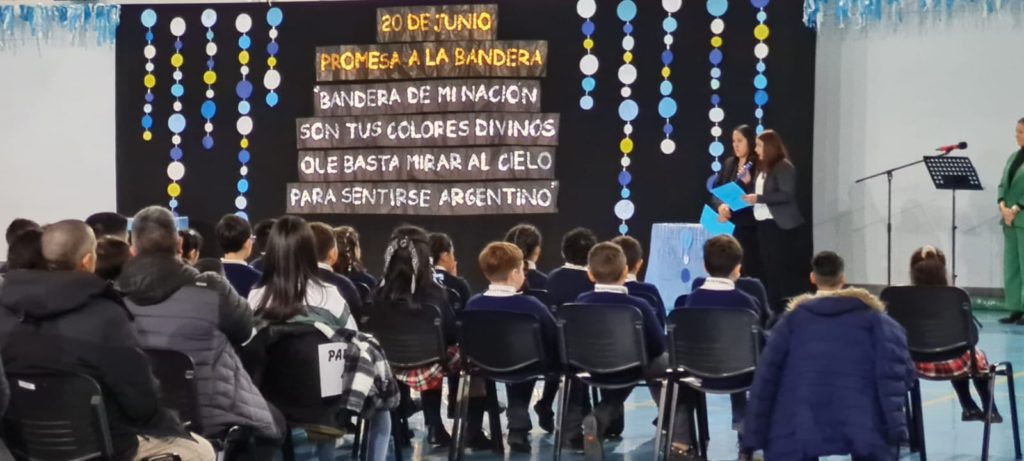 20 DE JUNIO
PROMESA A LA BANDERA
"BANDERA DE MI NACIÓN
SON TUS COLORES DIVINOS
QUE BASTA MIRAR AL CIELO
PARA SENTIRSE ARGENTINO"